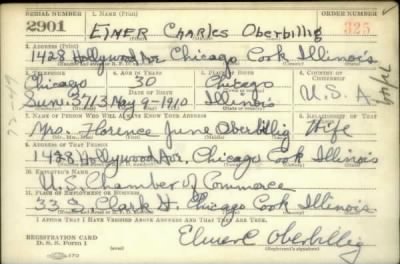 SERIAL NUMBER 1. NAME (Print) ORDER NUMBER
2901 ElMER Charles Oberbillig 325
2. ADDRESS (Print)
1428 Hollywood Ave Chicago Cook Illinois
3. TELEPHONE 4. AGE IN YEARS 5. PLACE OF BIRTH 6. COUNTRY OF CITIZENSHIP
Chicago 30 Chicago
DATE OF BIRTH
Sune. 3713 May 9-1910 Illinois U.S.A.
7. NAME OF PERSON WHO WILL ALWAYS KNOW YOUR ADDRESS 8. RELATIONSHIP OF THAT PERSON
Mrs. Florence June Oberbillig Wife
9. ADDRESS OF THAT PERSON
1428 Hollywood Ave. Chicago Cook Illinois
10. EMPLOYER'S NAME
U.S. Chamber of Commerce
11. PLACE OF EMPLOYMENT OR BUSINESS
33 S. Clark St. Chicago Cook Illinois
I AFFIRM THAT I HAVE VERIFIED ABOVE ANSWERS AND THAT THEY ARE TRUE.
REGISTRATION CARD
D. S. S. Form 1 (over) Elmer C Oberbillig
(Registrant's signature)